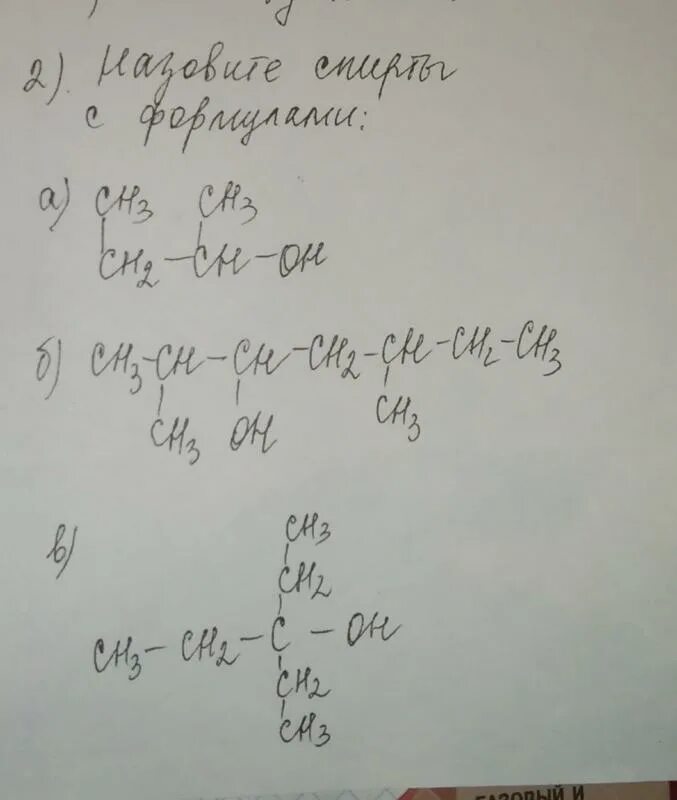 2). Назовите спирты
с формулами:
а) CH3 CH3
CH2 - CH - OH
б) CH3 - CH - CH - CH2 - CH - CH2 - CH3
CH3 OH CH3
в)
CH3
CH2
CH3 - CH2 - C - OH
CH2
CH3
БАЗОВЫЙ И